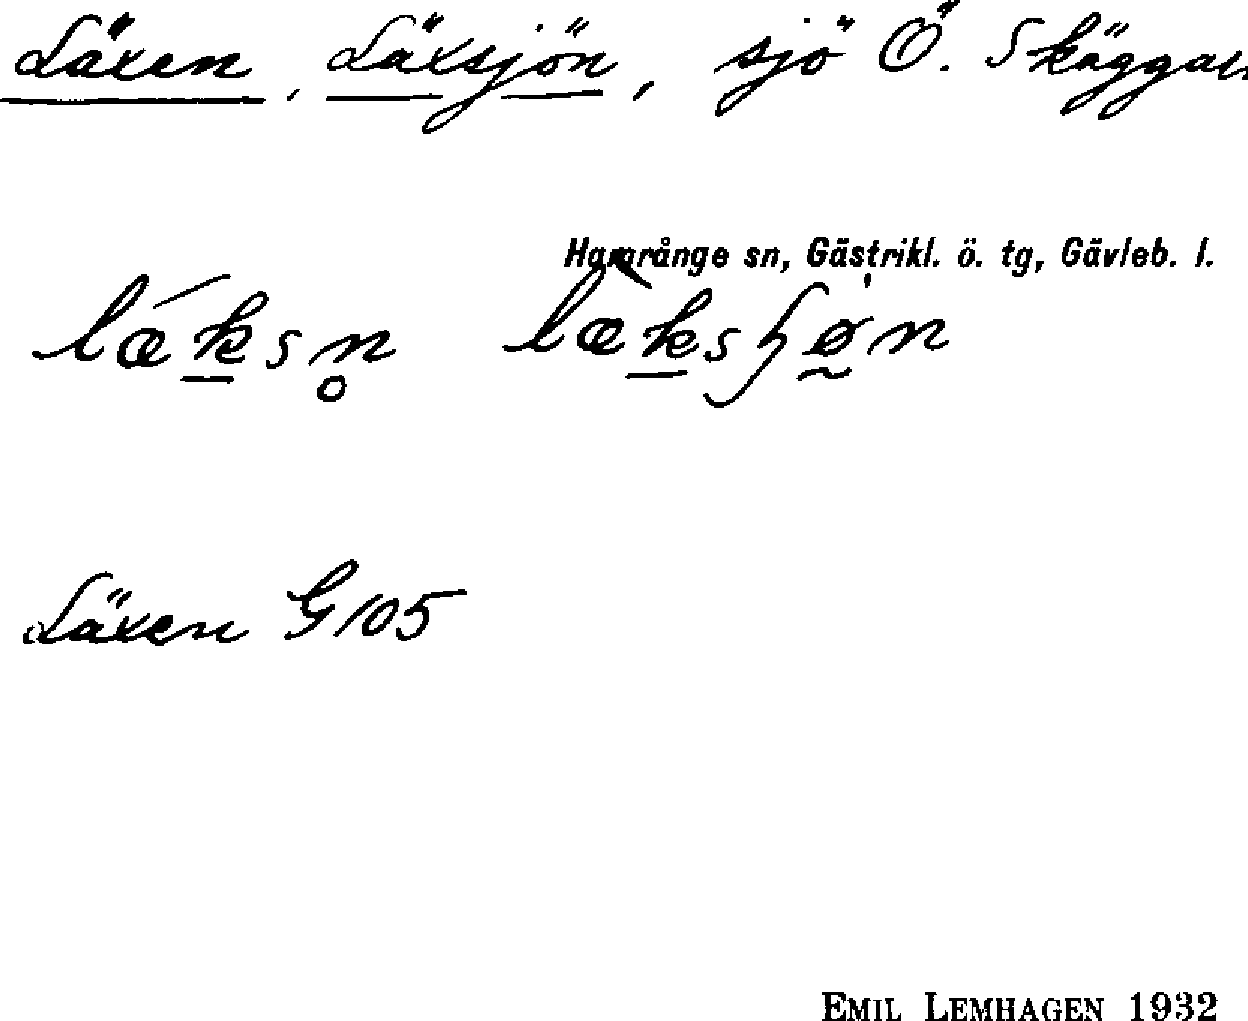 Läxen, Läxsjön, sjö Ö. Skäggan
Hamrånge sn, Gästrikl. ö. tg, Gävleb. l.
lǽksn̥ læ̀ksɧøn
Läxen G105
EMIL LEMHAGEN 1932